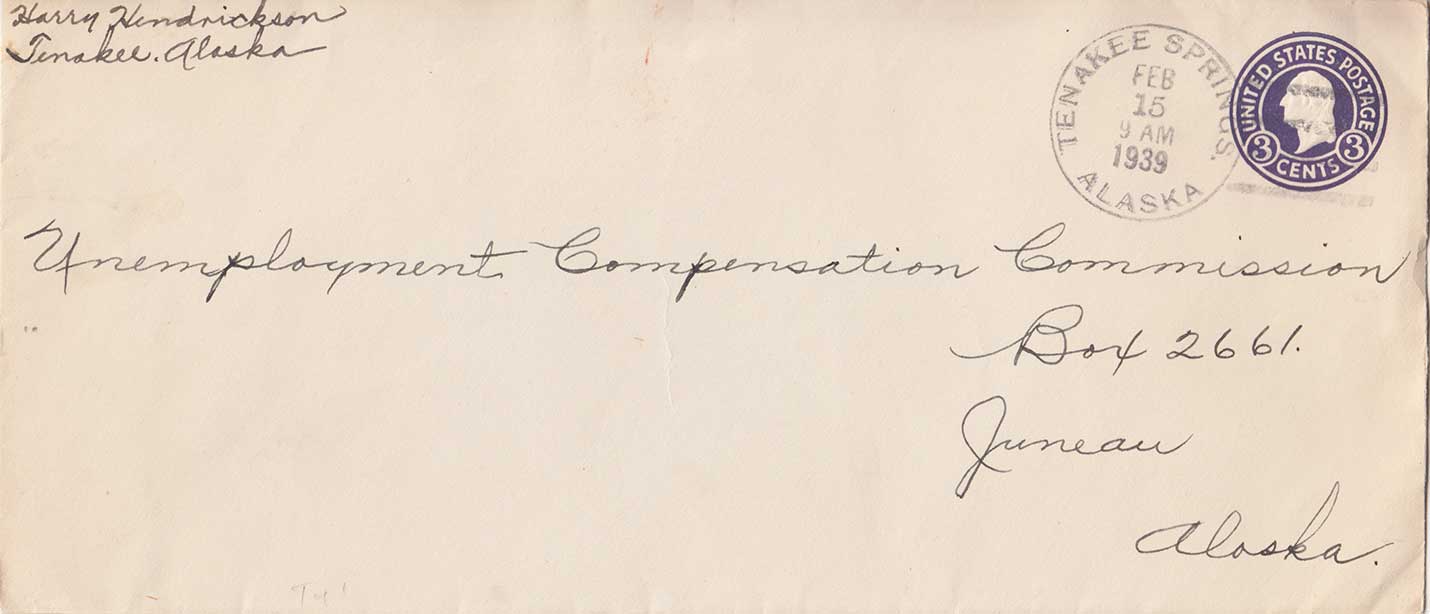 Harry Hendrickson
Tenakee. Alaska
TENAKEE SPRINGS.
FEB
15
9 AM
1939
ALASKA
UNITED STATES POSTAGE
3 CENTS 3
Unemployment Compensation Commission
Box 2661.
Juneau
Alaska.